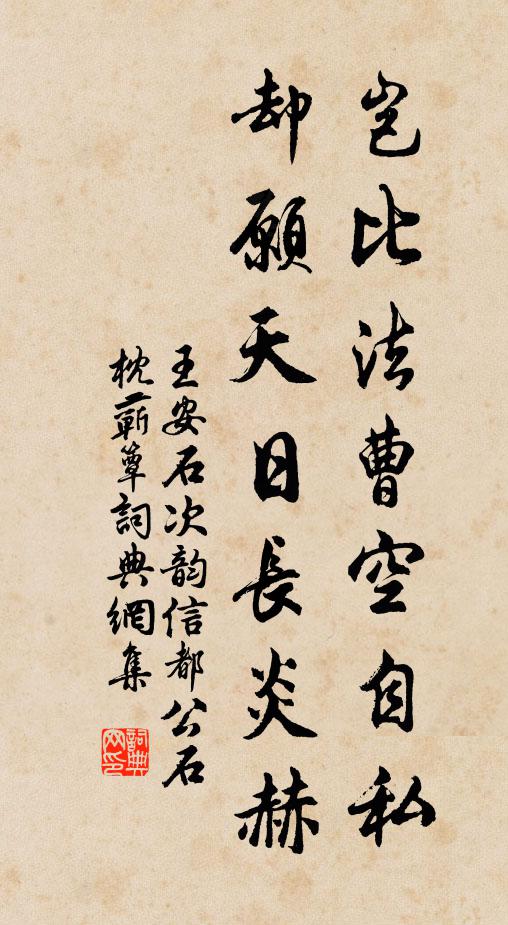 豈比法曹空自私
却願天日長炎赫
王安石次韵信都公石
枕蘄簟詞典網集
詞典网印